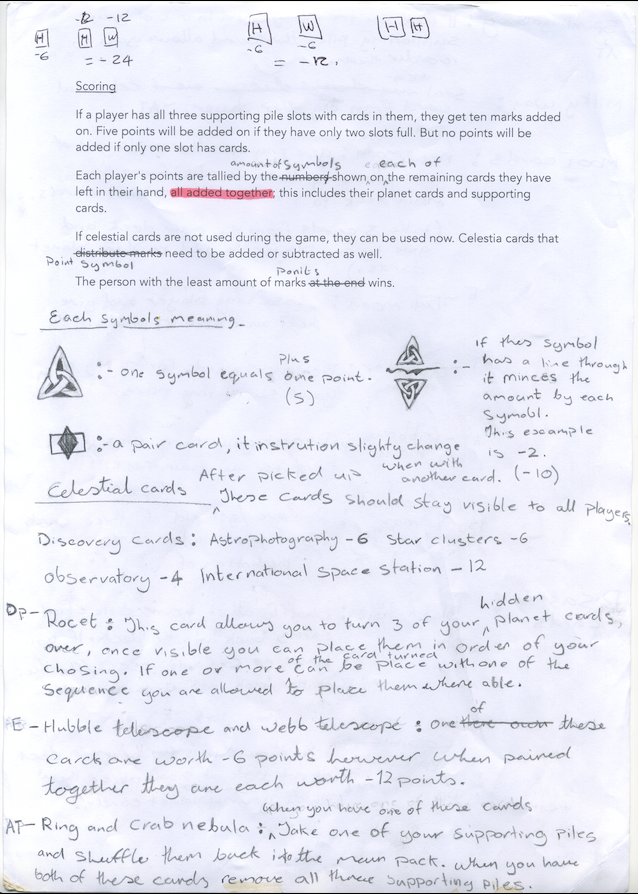 -12 -12
H M W H W H H
-6 -6 -6
= -24 = -12.
Scoring
If a player has all three supporting pile slots with cards in them, they get ten marks added
on. Five points will be added on if they have only two slots full. But no points will be
added if only one slot has cards.
amount of symbols each of
Each player's points are tallied by the numbers shown on the remaining cards they have
left in their hand, all added together; this includes their planet cards and supporting
cards.
If celestial cards are not used during the game, they can be used now. Celestia cards that
distribute marks need to be added or subtracted as well.
Point Symbol Ponits
The person with the least amount of marks at the end wins.
Each symbols meaning.
:- one symbol equals plus one point.
(5)
:- if thes symbol
has a line through
it minces the
amount by each
symobl.
This escample
is -2.
(-10)
:- a pair card, it instrution slighty change
when with
another card.
Celestial cards After picked up These cards should stay visible to all players
Discovery cards : Astrophotography -6 Star clusters -6
observatory -4 International Space Station -12
Dp- Rocet : This card allows you to turn 3 of your hidden planet cards,
over, once visible you can place them in order of your
chosing. If one or more of the card turned can be place with one of the
Sequence you are allowed to place them where able.
E- Hubble telescope and webb telescope : one of there own these
cards are worth -6 points however when pained
together they are each worth -12 points.
when you have one of these cards
AT- Ring and Crab nebula : Take one of your supporting piles
and shuffle them back into the main pack. When you have
both of these cards remove all three supporting piles.